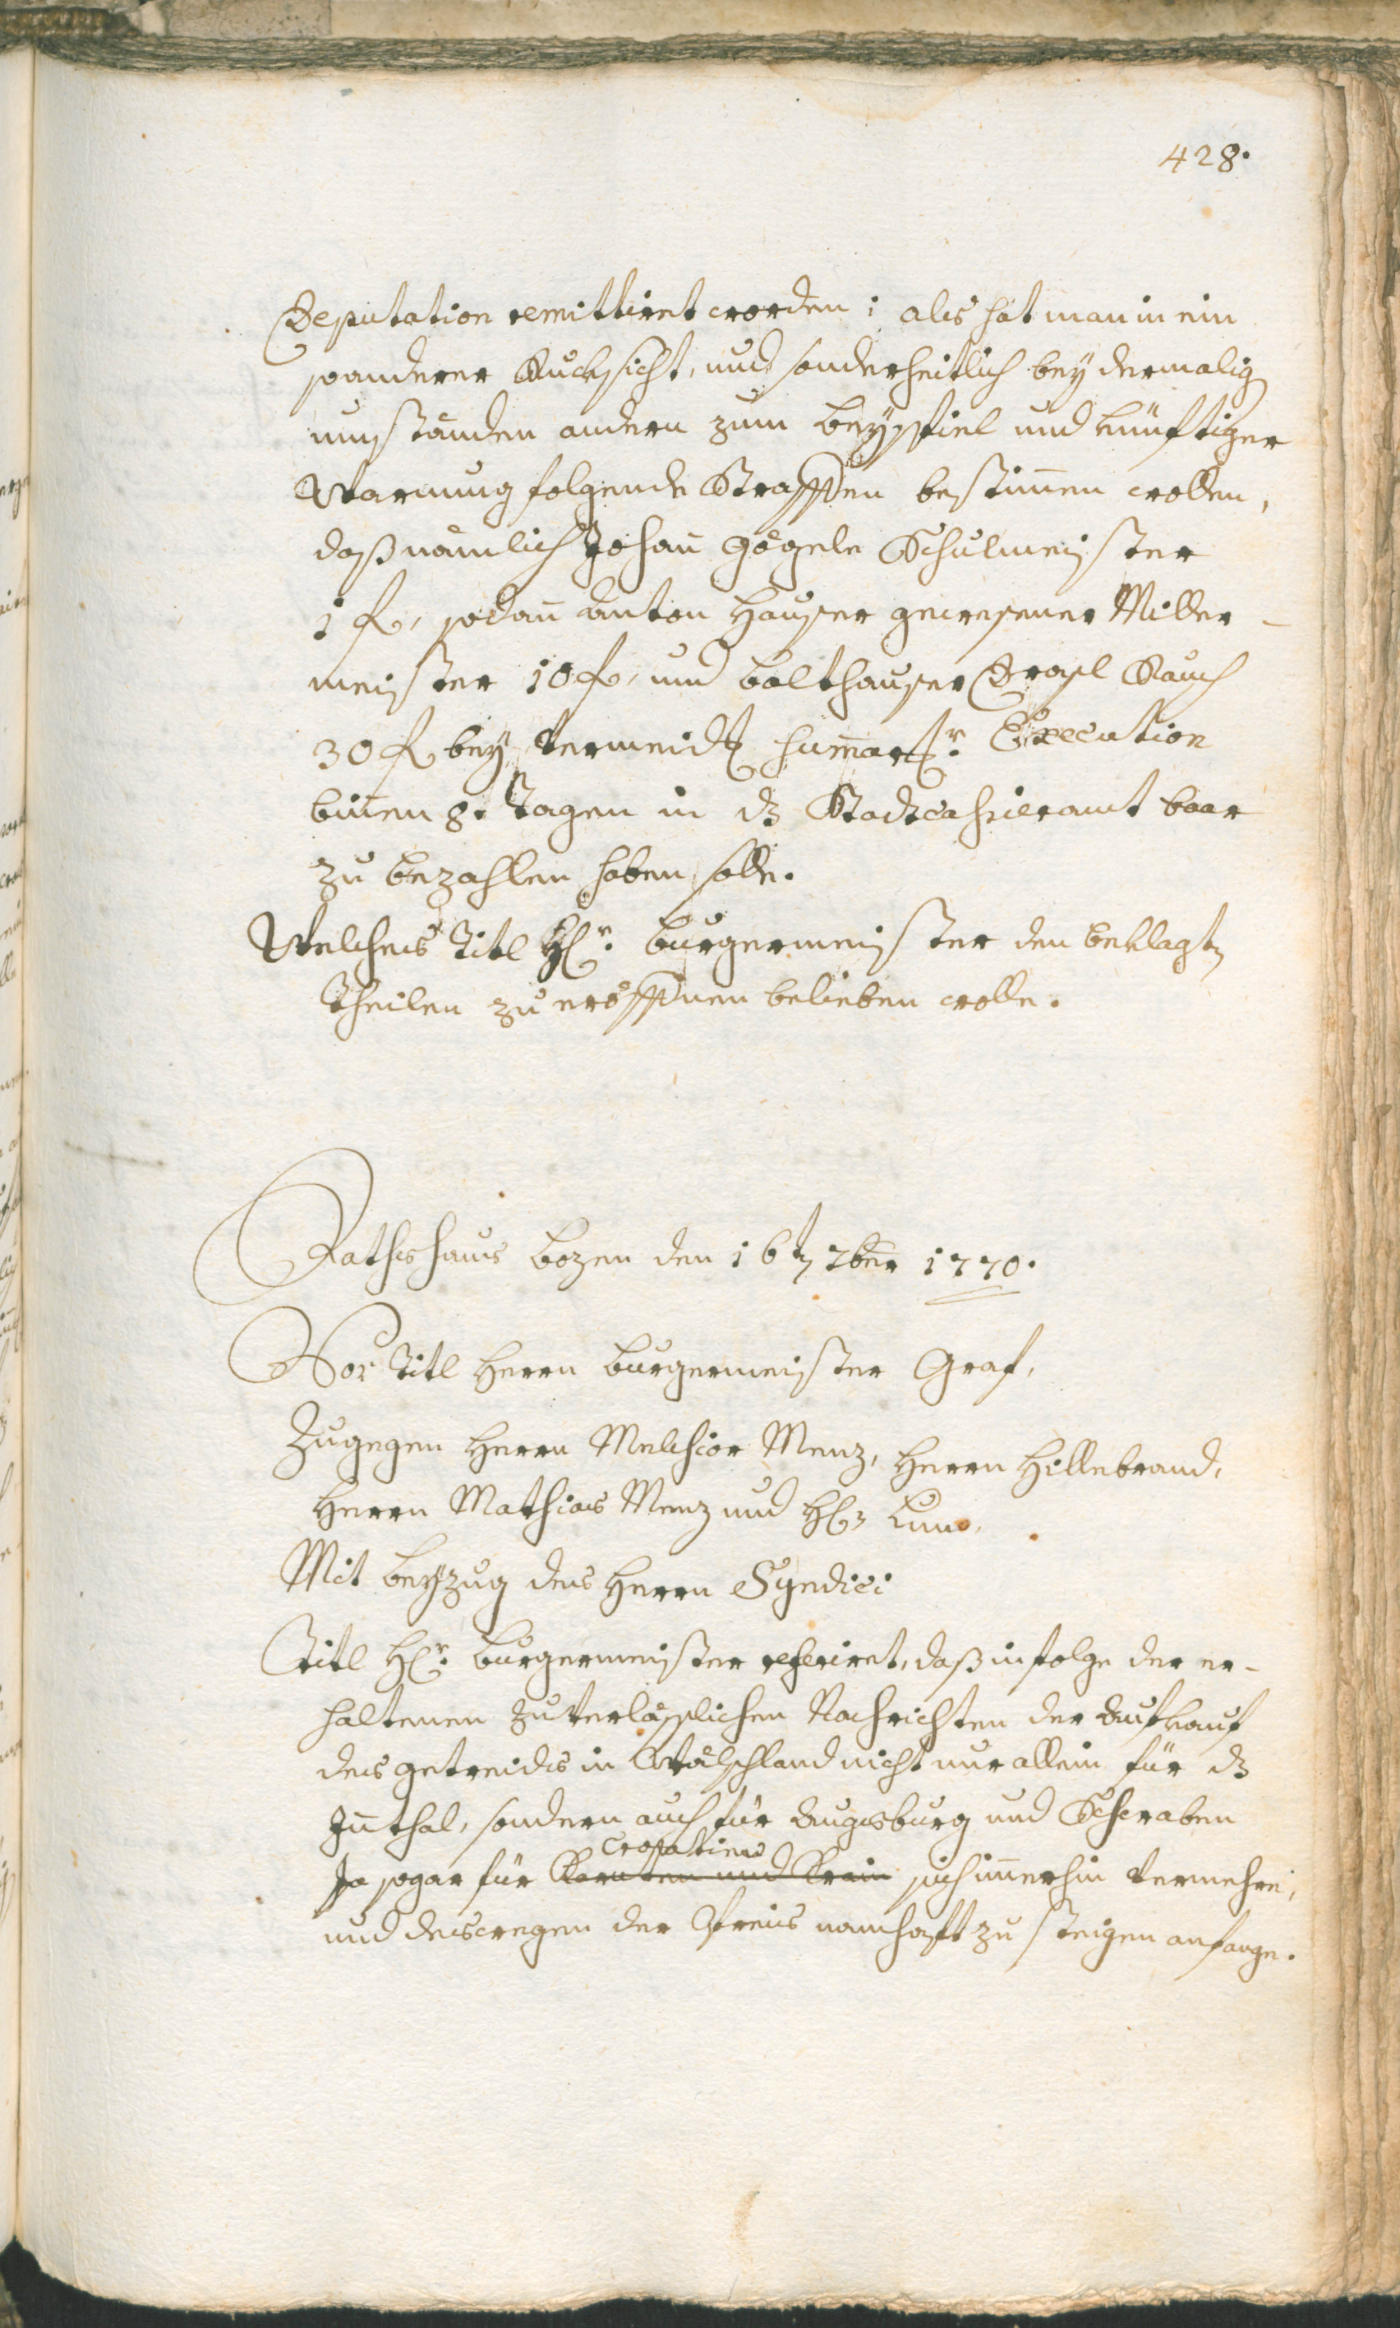 428.
Deputation remittiret worden; als hat man in ein
sonderer Rucksicht, und sonderheitlich bey dermalig
umständen andern zum beyspiel und künftiger
Warnung folgende Straffen bestim̅en wollen,
daß nämlich Johan̅ Gögele Schulmeister
1 f, sodan̅ Anton Hauser gewesener Miller-
meister 10 f, und balthauser Rauch
30 f bey Vermeidg sum̅arr. Execution
bin̅en 8. Tagen in dz Stadtcassieramt baar
zu bezahlen haben solle.
Welches Titl Hr. burgermeister den beklagtn
Theilen zu eröffnen belieben wolle.
Rathshaus bozen den 16tn 7ber 1770.
Vor Titl Herrn burgermeister Graf,
Zugegen Herrn Melchior Menz, Herrn Hillebrand,
Herrn Mathias Menz und H.
Mit beyzug des Herrn Syndici
Titl Hr. burgermeister referiret, daß infolge der er-
haltenen zuverläßlichen Nachrichten der Aufkauf
des getreids in Wälschland nicht nur allein für dz
In̅thal, sondern auch für Augsburg und Schwaben
Croatien
Ja sogar für Karnten und Krain sich im̅erhin vermehre,
und deswegen der Preis namhaft zu steigen anfange.